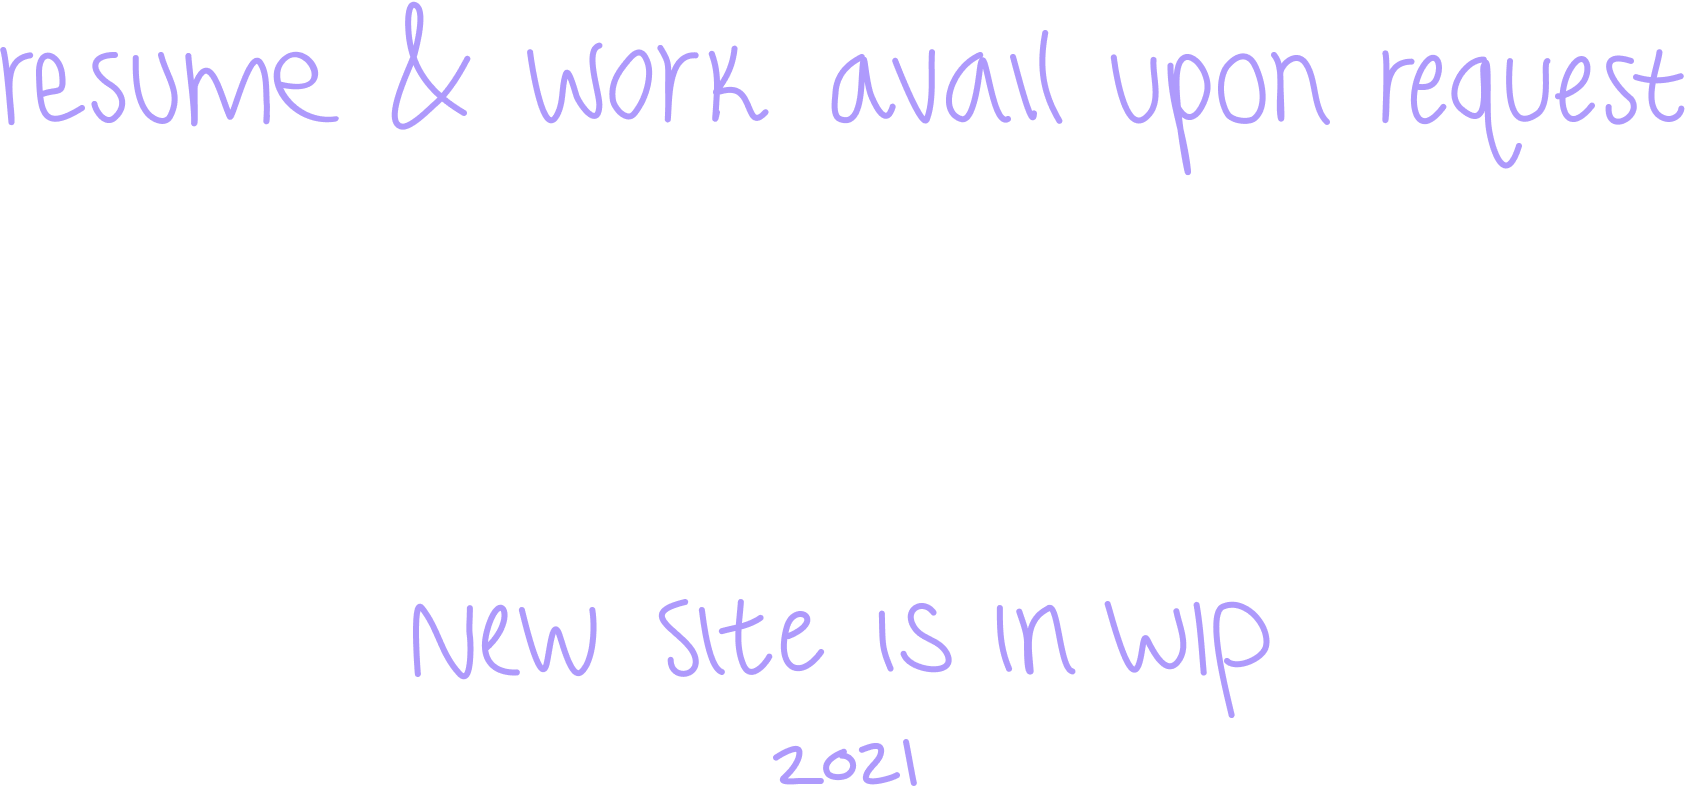 resume & work avail upon request
New site is in wip
2021